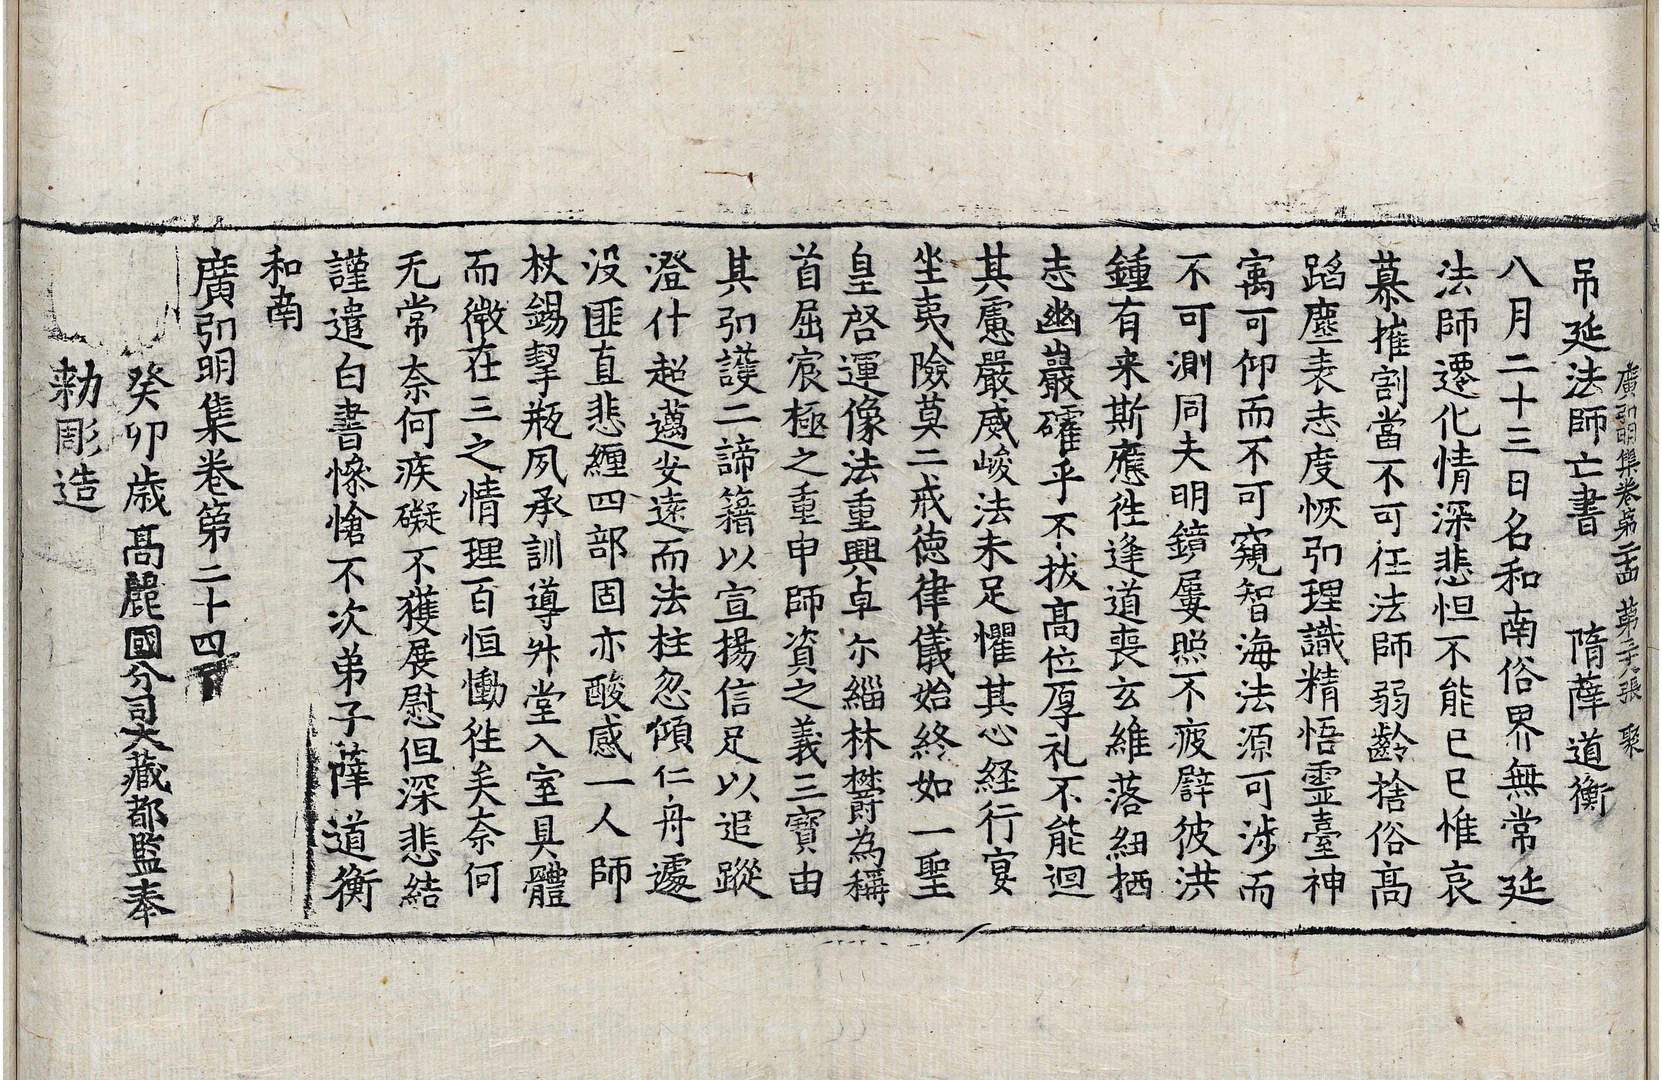 廣弘明集卷第二十四 第二十六張 聚
吊延法師亡書 隋薛道衡
八月二十三日名和南俗界無常延
法師遷化情深悲怛不能已已惟哀
慕摧割當不可任法師弱齡捨俗高
蹈塵表志度恢弘理識精悟靈臺神
寓可仰而不可窺智海法源可涉而
不可測同夫明鏡屢照不疲譬彼洪
鍾有来斯應徃逢道喪玄維落紐栖
志幽巖確乎不拔高位厚礼不能迴
其慮嚴威峻法未足懼其心経行宴
坐夷險莫二戒徳律儀始終如一聖
皇啓運像法重興卓尔緇林欝為稱
首屈宸極之重申師資之義三寶由
其弘護二諦籍以宣揚信足以追蹤
澄什超邁安遠而法柱忽傾仁舟遽
没匪直悲纏四部固亦酸感一人師
杖錫挈瓶夙承訓導升堂入室具體
而微在三之情理百恒慟徃矣奈何
无常奈何疾礙不獲展慰但深悲結
謹遣白書慘愴不次弟子薛道衡
和南
廣弘明集卷第二十四
癸卯歳高麗國分司大藏都監奉
勅彫造